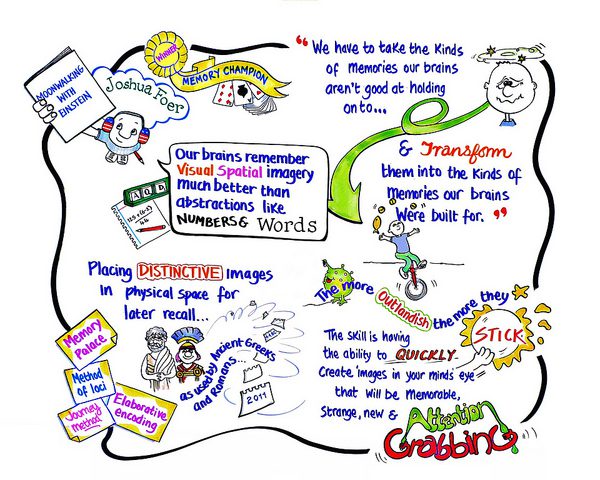 MOONWALKING
WITH
EINSTEIN
Joshua Foer
WINNER
MEMORY CHAMPION
“We have to take the kinds
of memories our brains
aren't good at holding
onto...
& Transform
them into the kinds of
memories our brains
were built for. ”
Our brains remember
Visual Spatial imagery
much better than
abstractions like
NUMBERS & Words
Placing DISTINCTIVE images
in physical space for
later recall...
as used by Ancient Greeks
and Romans...
2011
Memory
Palace
Method
of loci
Journey
Method
Elaborative
encoding
The more Outlandish the more they
STICK
The skill is having
the ability to QUICKLY
Create images in your minds eye
that will be Memorable,
Strange, new &
Attention
Grabbing